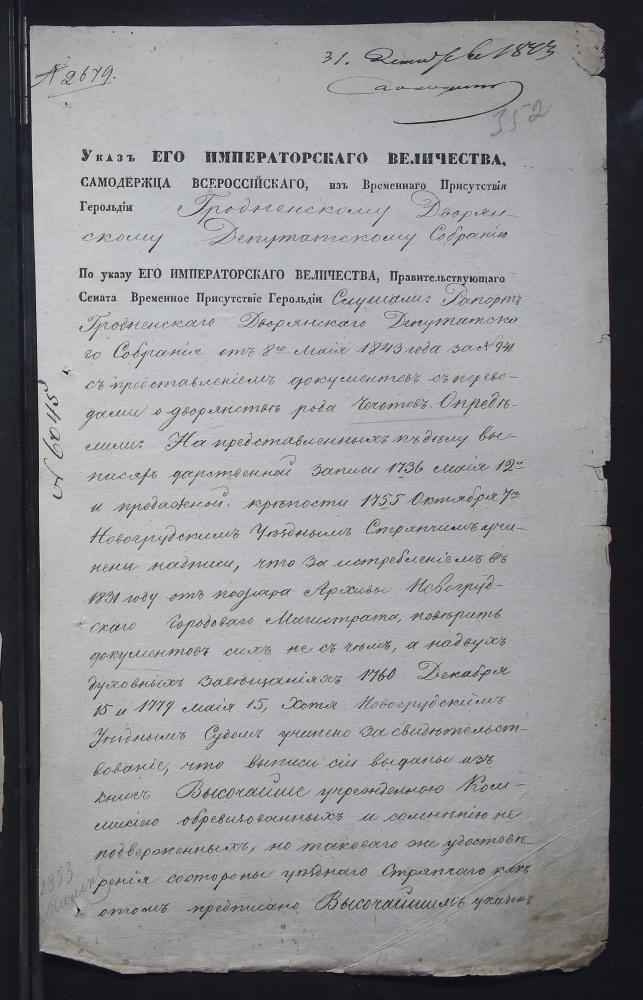 № 2679.
31. Декабря 1843
352
Указъ ЕГО ИМПЕРАТОРСКАГО ВЕЛИЧЕСТВА,
САМОДЕРЖЦА ВСЕРОССІЙСКАГО, изъ Временнаго Присутствія
Герольдіи Гродненскому Дворян-
скому Депутатскому Собранію
По указу ЕГО ИМПЕРАТОРСКАГО ВЕЛИЧЕСТВА, Правительствующаго
Сената Временное Присутствіе Герольдіи Слушали: Рапортъ
Гродненскаго Дворянскаго Депутатска-
го Собранія отъ 8го Маія 1843 года за № 941
съ представленіемъ документовъ съ перево-
дами о дворянствѣ рода Чечотовъ. Опредѣ-
лили: На представленныхъ къ дѣлу вы-
писяхъ дарственной записи 1736 маія 12го
и продажной крѣпости 1755 Октября 7го
Новогрудскимъ Уѣзднымъ Стряпчимъ учи-
нены надписи, что за истребленіемъ въ
1831 году отъ пожара Архивы Новогруд-
скаго Городоваго Магистрата, повѣрить
документовъ сихъ не съ чѣмъ, а на двухъ
духовныхъ завѣщаніяхъ 1760 Декабря
15 и 1779 маія 15, Хотя Новогрудскимъ
Уѣзднымъ Судомъ учинено засвидѣтельст-
вованіе, что выписи сіи выданы изъ
книгъ Высочайше учрежденною Ком-
мисіею обревизованныхъ и сомнѣнію не
подверженныхъ, но таковаго же удостовѣ-
ренія со стороны уѣзднаго Стряпчаго какъ
о томъ предписано Высочайшимъ указомъ
1853